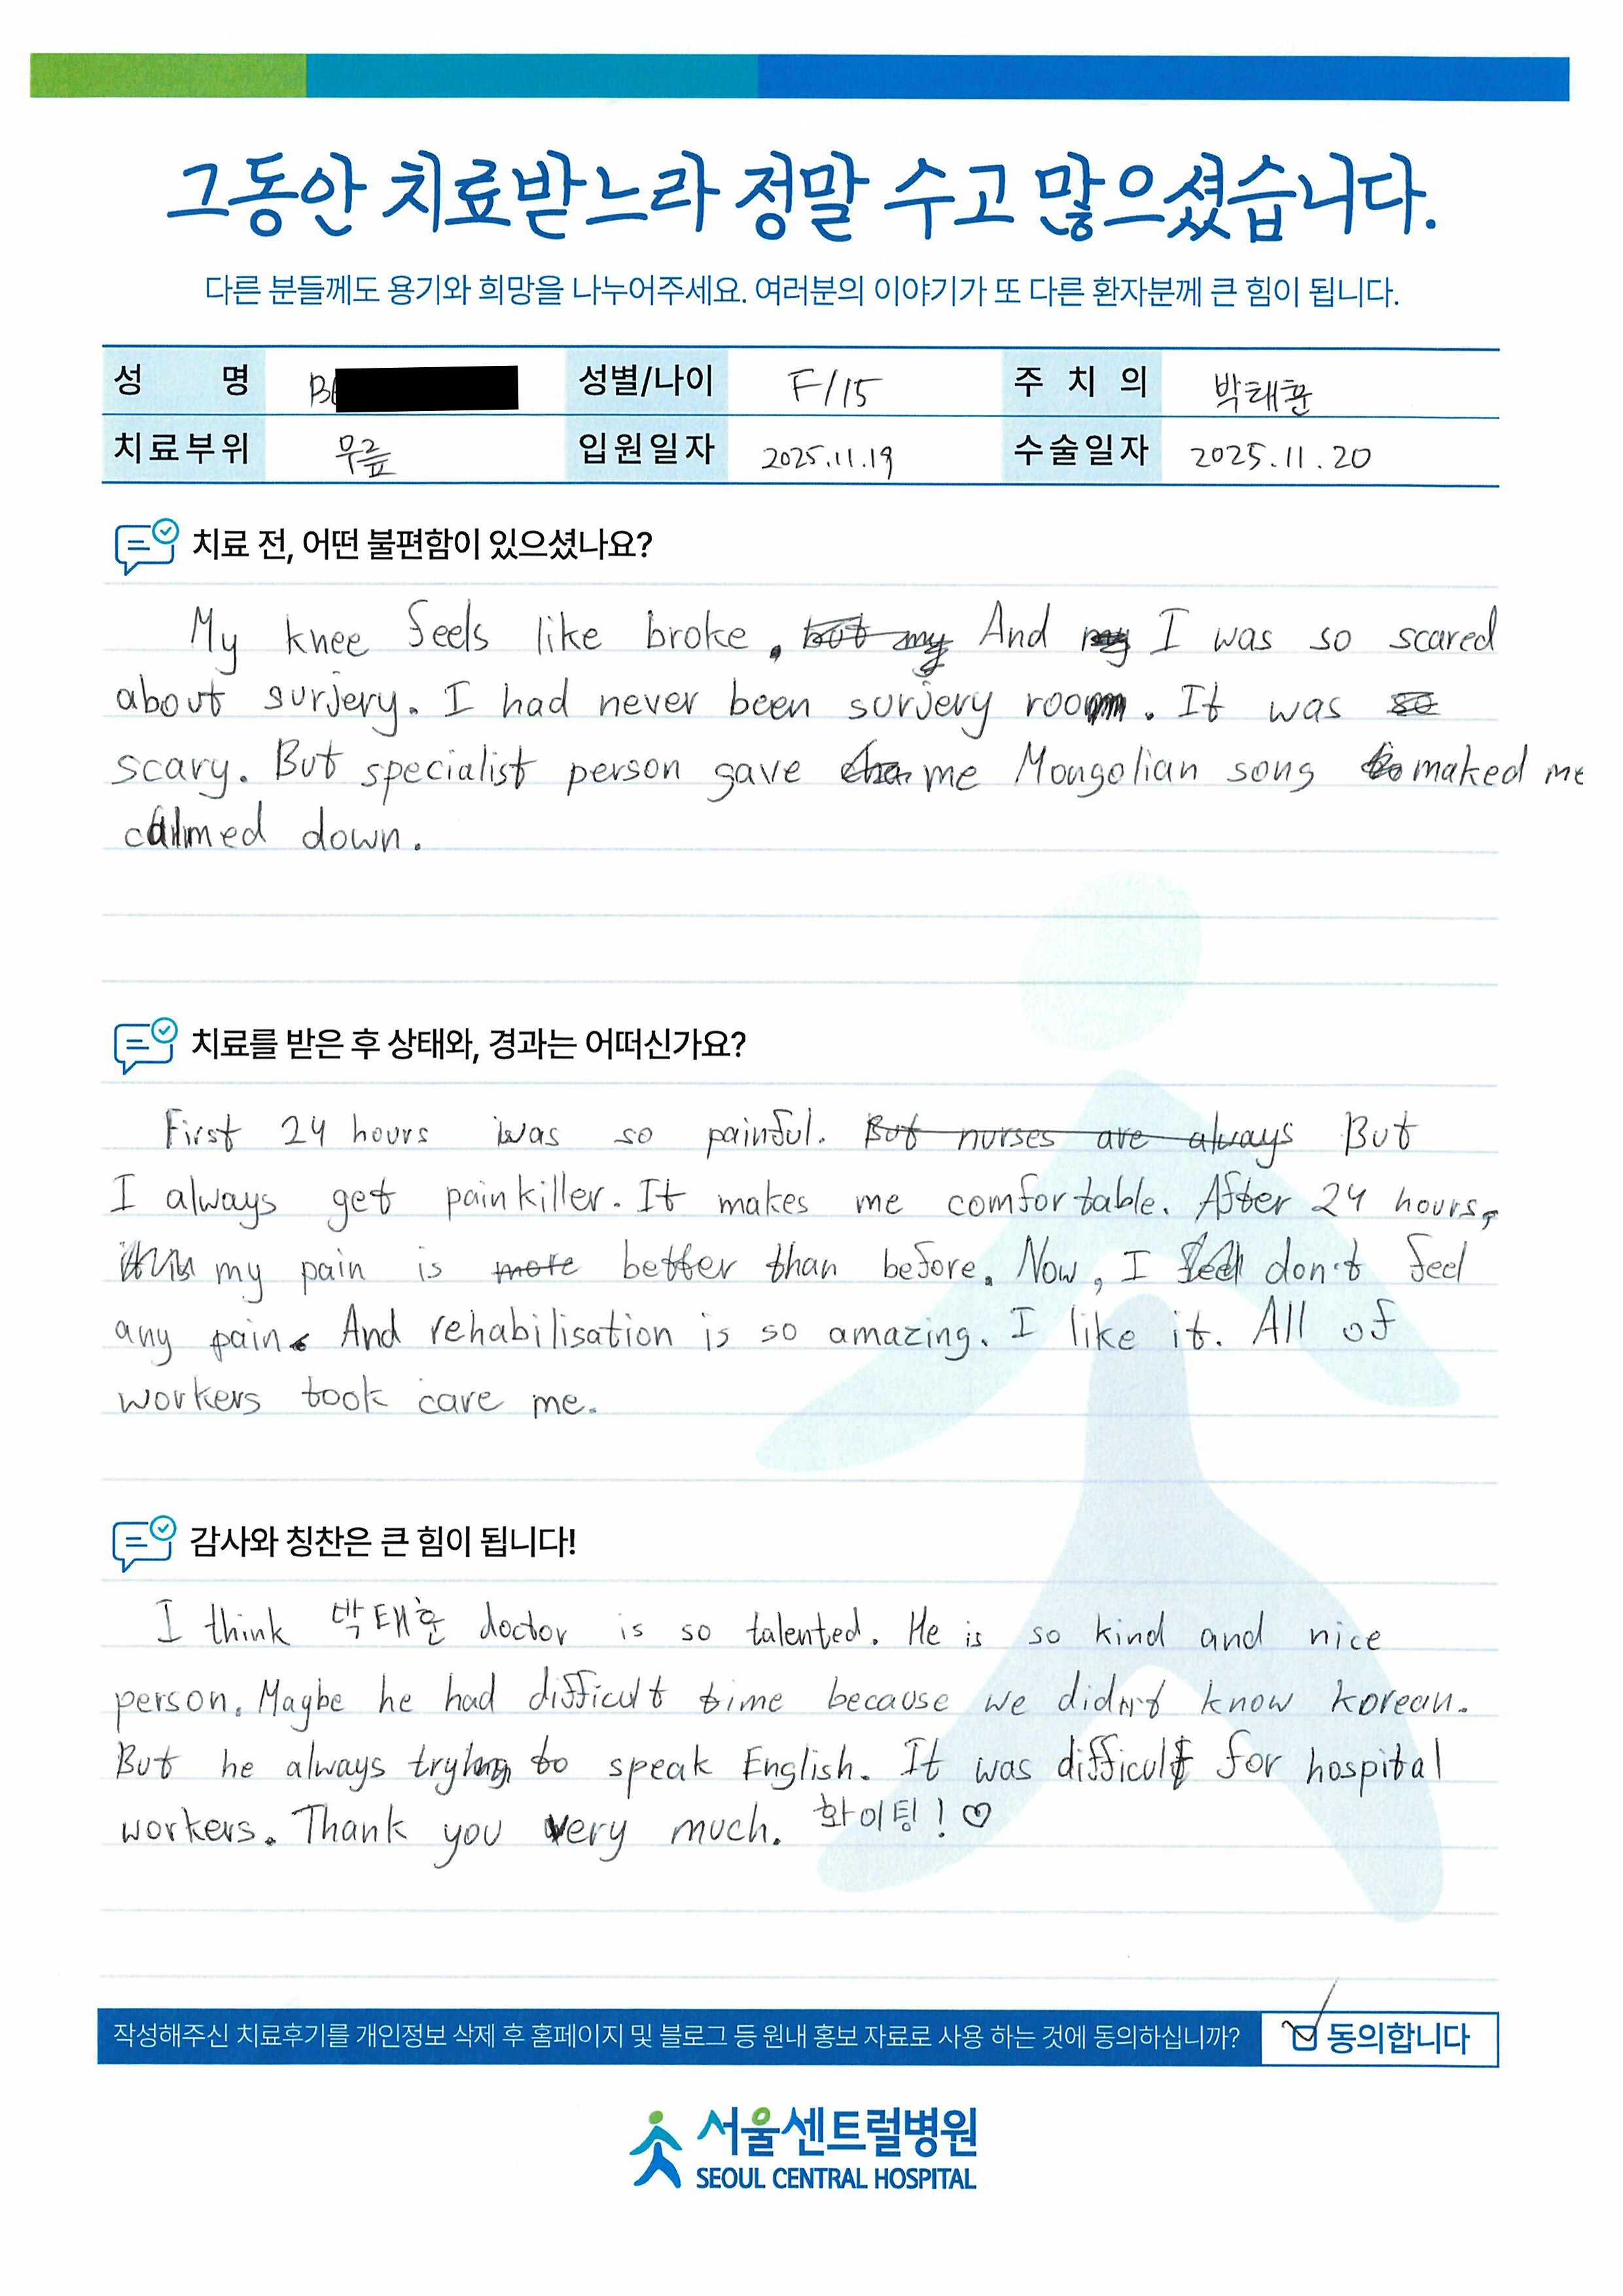 그동안 치료받느라 정말 수고 많으셨습니다.
다른 분들께도 용기와 희망을 나누어주세요. 여러분의 이야기가 또 다른 환자분께 큰 힘이 됩니다.
성 명 성별/나이 F/15 주 치 의 박태훈
치료부위 무릎 입원일자 2025.11.19 수술일자 2025.11.20
치료 전, 어떤 불편함이 있으셨나요?
My knee feels like broke. but my And my I was so scared
about surjery. I had never been surjery room. It was so
scary. But specialist person gave me Mongolian song maked me
calmed down.
치료를 받은 후 상태와, 경과는 어떠신가요?
First 24 hours was so painful. But nurses are always But
I always get painkiller. It makes me comfortable. After 24 hours,
my pain is more better than before. Now, I feel don't feel
any pain. And rehabilisation is so amazing. I like it. All of
workers took care me.
감사와 칭찬은 큰 힘이 됩니다!
I think 박태훈 doctor is so talented. He is so kind and nice
person. Maybe he had difficult time because we didn't know korean.
But he always trying to speak English. It was difficult for hospital
workers. Thank you very much. 화이팅! ♡
작성해주신 치료후기를 개인정보 삭제 후 홈페이지 및 블로그 등 원내 홍보 자료로 사용 하는 것에 동의하십니까? 동의합니다
서울센트럴병원
SEOUL CENTRAL HOSPITAL